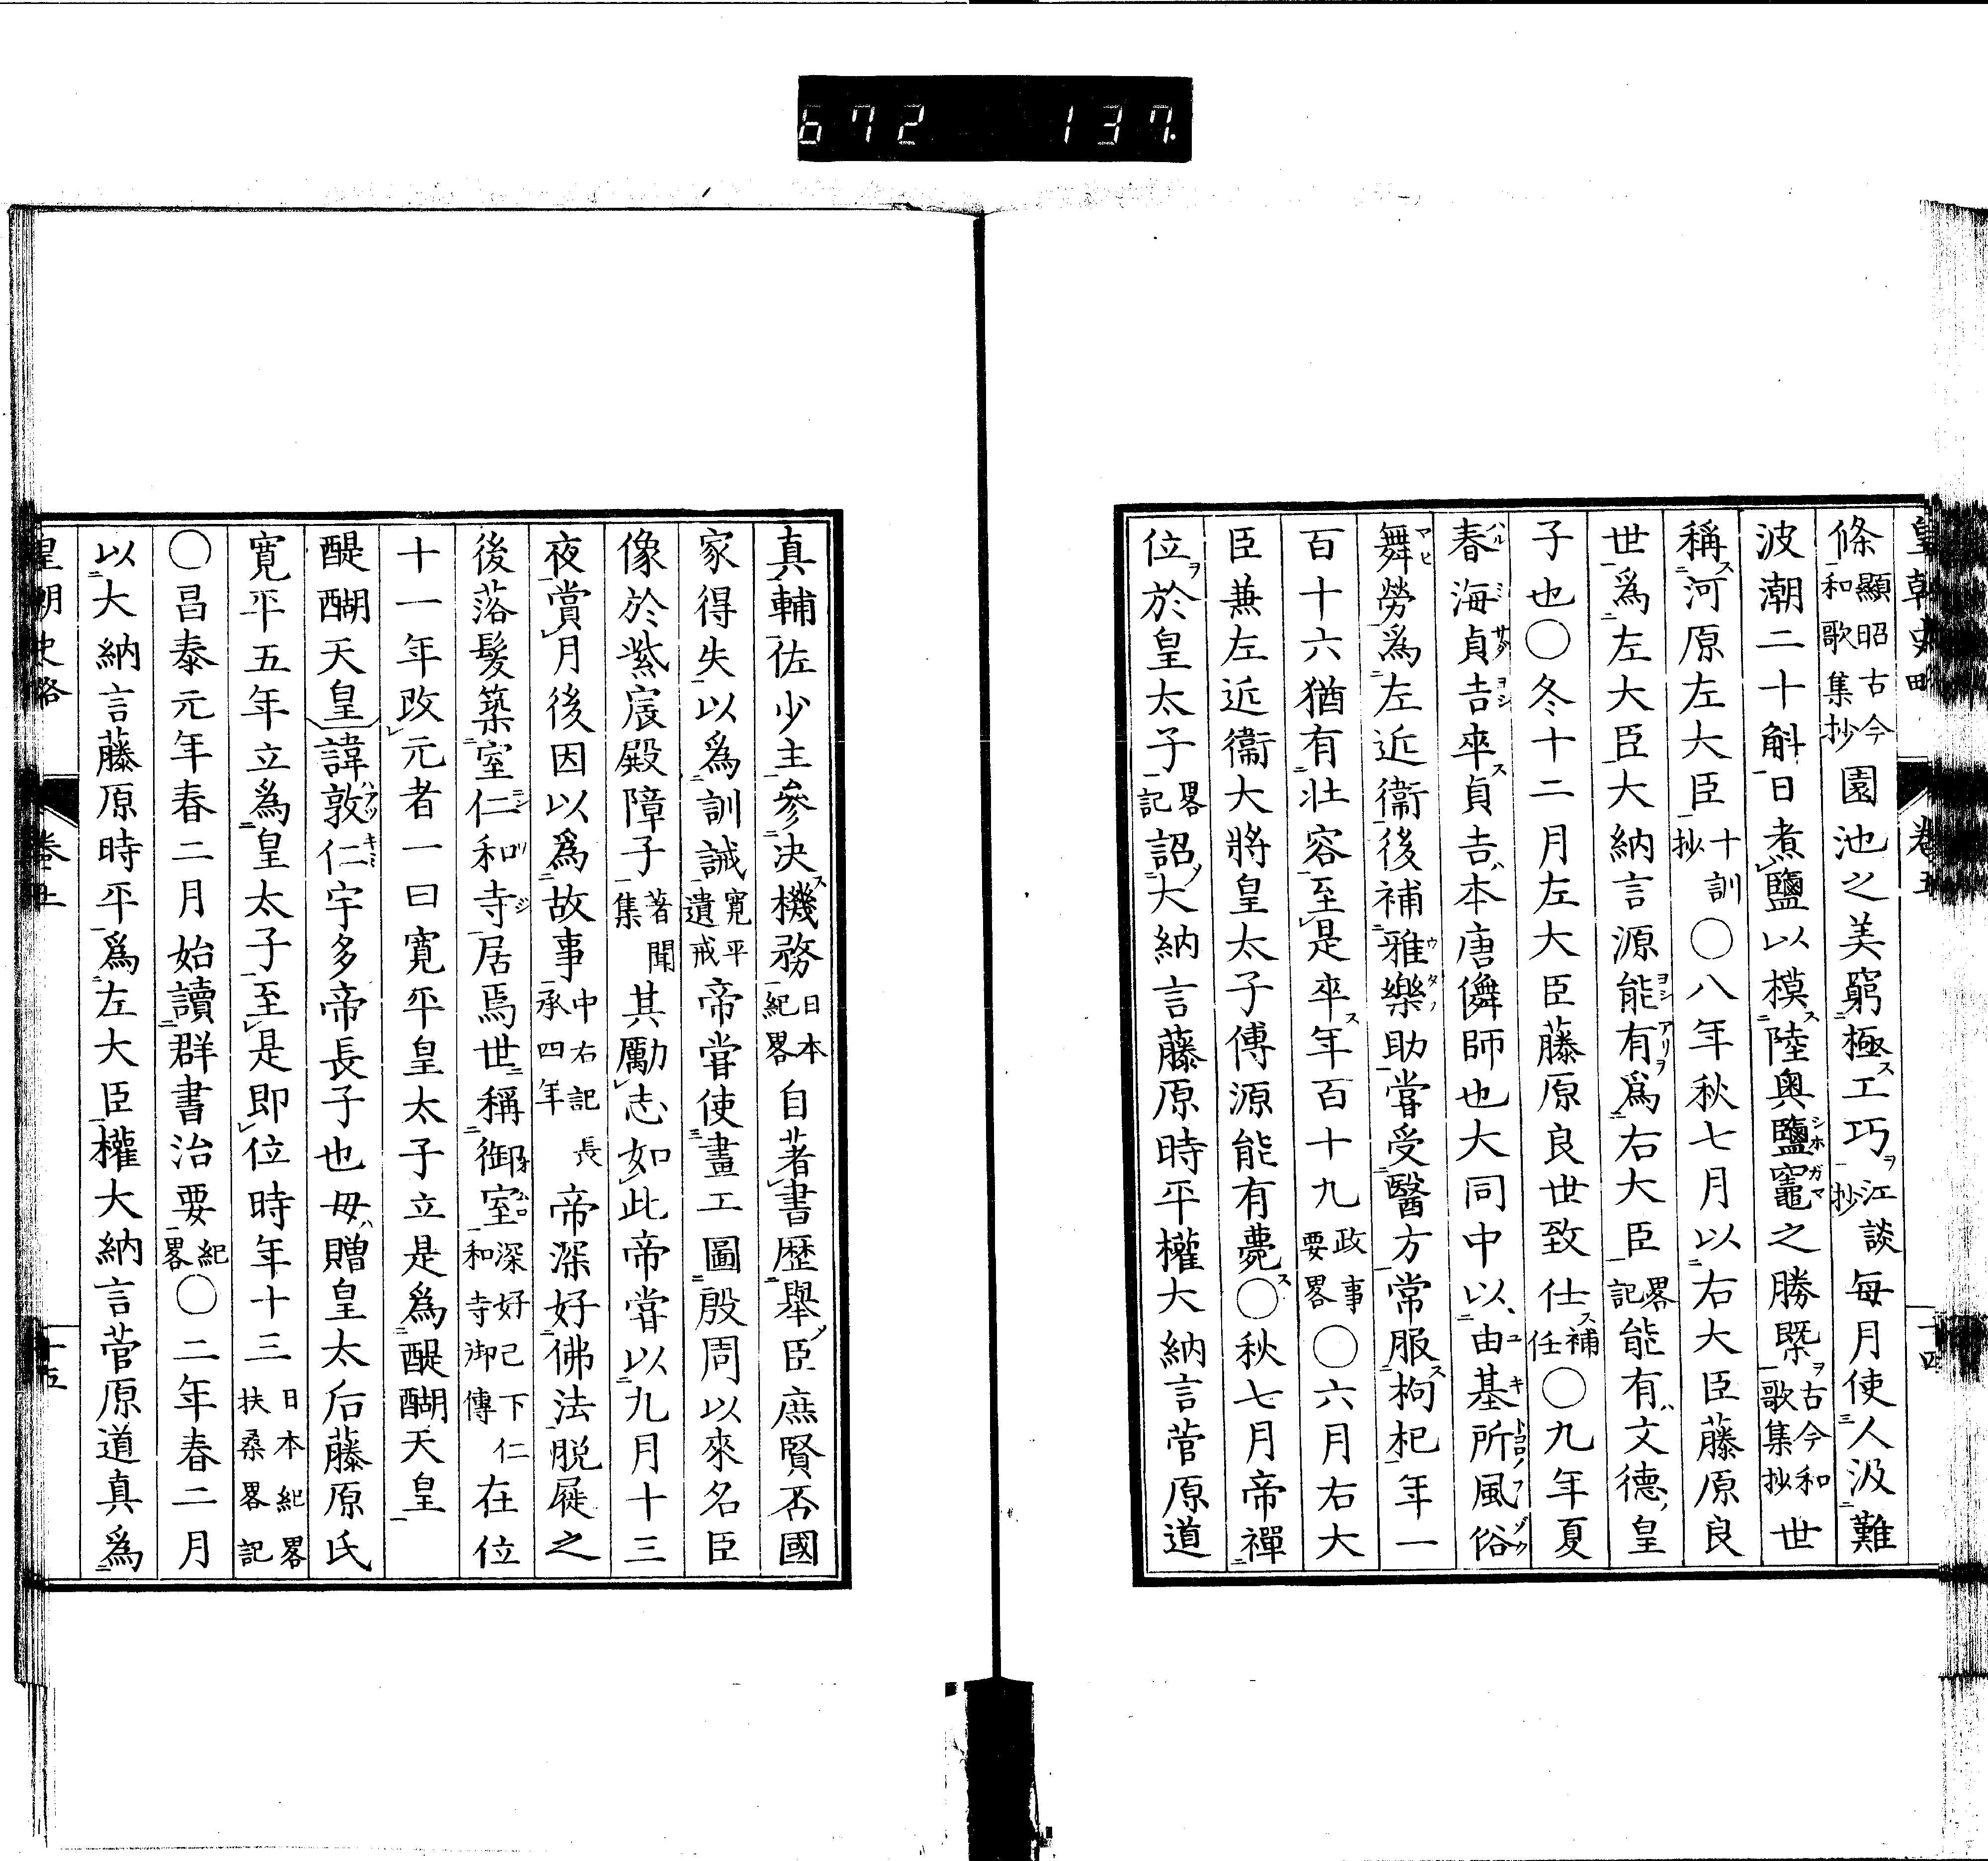 672 137.
條顯昭古今和歌集抄園池之美窮極工巧江談抄每月使人汲難
波潮二十斛日煮鹽以模陸奥鹽竈之勝槩古今和歌集抄世
稱河原左大臣十訓抄〇八年秋七月以右大臣藤原良
世爲左大臣大納言源能有爲右大臣畧記能有文德皇
子也〇冬十二月左大臣藤原良世致仕補任〇九年夏
春海貞吉卒貞吉本唐儛師也大同中以由基所風俗
舞勞爲左近衞後補雅樂助嘗受醫方常服枸杞年一
百十六猶有壯容至是卒年百十九政事要畧〇六月右大
臣兼左近衞大將皇太子傅源能有薨〇秋七月帝禪
位於皇太子畧記詔大納言藤原時平權大納言菅原道
真輔佐少主參決機務日本紀畧自著書歷舉臣庶賢否國
家得失以爲訓誡寬平遺戒帝嘗使畫工圖殷周以來名臣
像於紫宸殿障子著聞集其勵志如此帝嘗以九月十三
夜賞月後因以爲故事中右記長承四年帝深好佛法脱屣之
後落髮築室仁和寺居焉世稱御室深好已下仁和寺御傳在位
十一年改元者一曰寬平皇太子立是爲醍醐天皇
醍醐天皇諱敦仁宇多帝長子也母贈皇太后藤原氏
寬平五年立爲皇太子至是即位時年十三日本紀畧扶桑畧記
〇昌泰元年春二月始讀群書治要紀畧〇二年春二月
以大納言藤原時平爲左大臣權大納言菅原道真爲